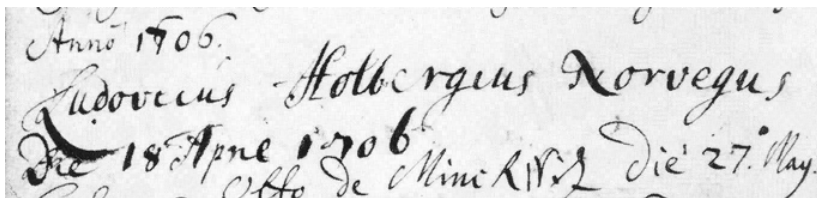 Anno 1706.
Ludovicus Holbergius Norvegus
Die 18 Aprie 1706
Otto de Minckwitz die 27. May.